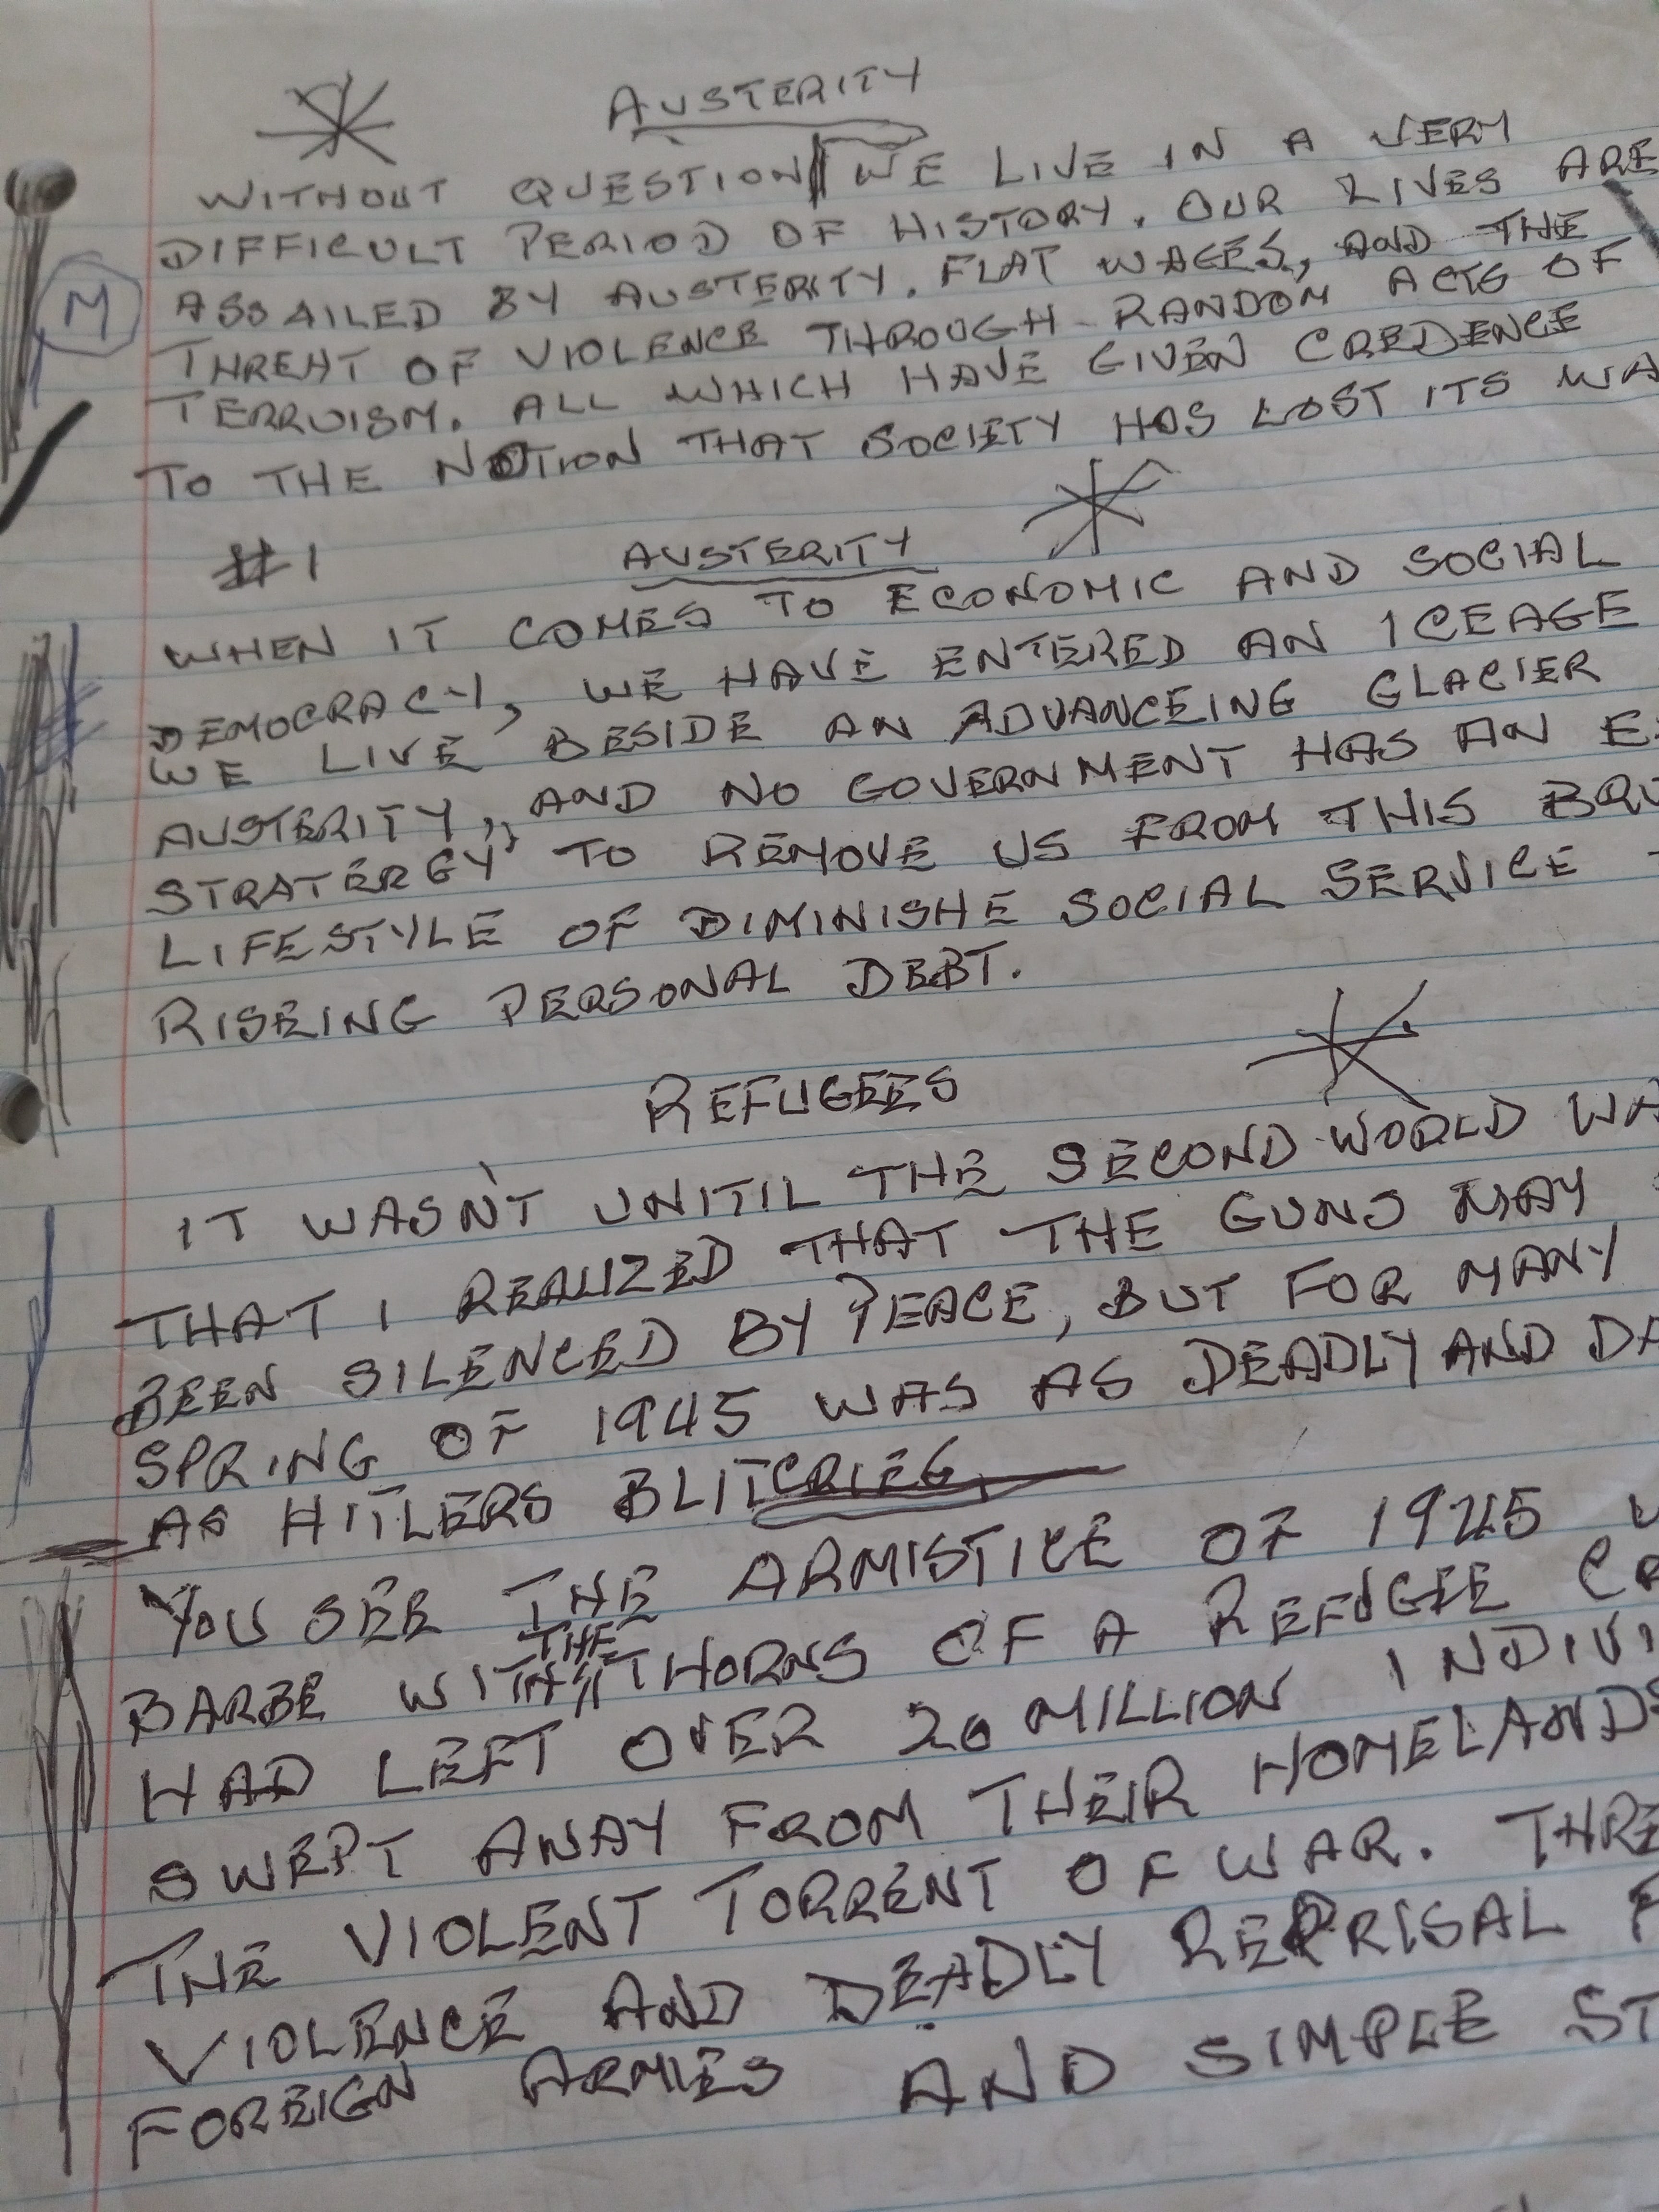 AUSTERITY
WITHOUT QUESTION WE LIVE IN A VERY
DIFFICULT PERIOD OF HISTORY. OUR LIVES ARE
M
ASSAILED BY AUSTERITY. FLAT WAGES, AND THE
THREAT OF VIOLENCE THROUGH RANDOM ACTS OF
TERRUISM. ALL WHICH HAVE GIVEN CREDENCE
TO THE NOTION THAT SOCIETY HAS LOST ITS WA
#1 AUSTERITY
WHEN IT COMES TO ECONOMIC AND SOCIAL
DEMOCRACY, WE HAVE ENTERED AN ICEAGE
WE LIVE BESIDE AN ADVANCEING GLACIER
AUSTERITY, AND NO GOVERNMENT HAS AN
STRATERGY TO REMOVE US FROM THIS BRU
LIFESTYLE OF DIMINISHE SOCIAL SERVICE
RISEING PERSONAL DEBT.
REFUGEES
IT WASN'T UNITIL THE SECOND WORLD WA
THAT I REALIZED THAT THE GUNS MAY
BEEN SILENCED BY PEACE, BUT FOR MANY
SPRING OF 1945 WAS AS DEADLY AND DA
AS HITLERS BLITCRIEG
YOU SEE THE ARMISTICE OF 1945
BARBE WITH THE THORNS OF A REFUGEE CR
HAD LEFT OVER 20 MILLION INDIVI
SWEPT AWAY FROM THEIR HOMELANDS
THE VIOLENT TORRENT OF WAR. THRE
VIOLENCE AND DEADLY REPRISAL F
FOREIGN ARMIES AND SIMPLE ST